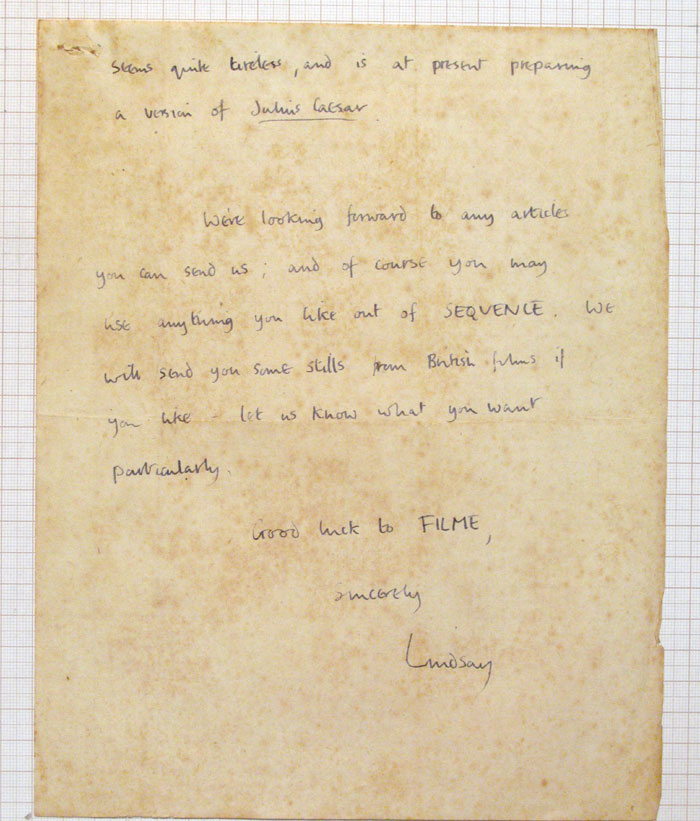 seems quite tireless, and is at present preparing
a version of Julius Caesar.
We're looking forward to any articles
you can send us; and of course you may
use anything you like out of SEQUENCE. We
will send you some stills from British films if
you like - let us know what you want
particularly.
Good luck to FILME,
Sincerely
Lindsay